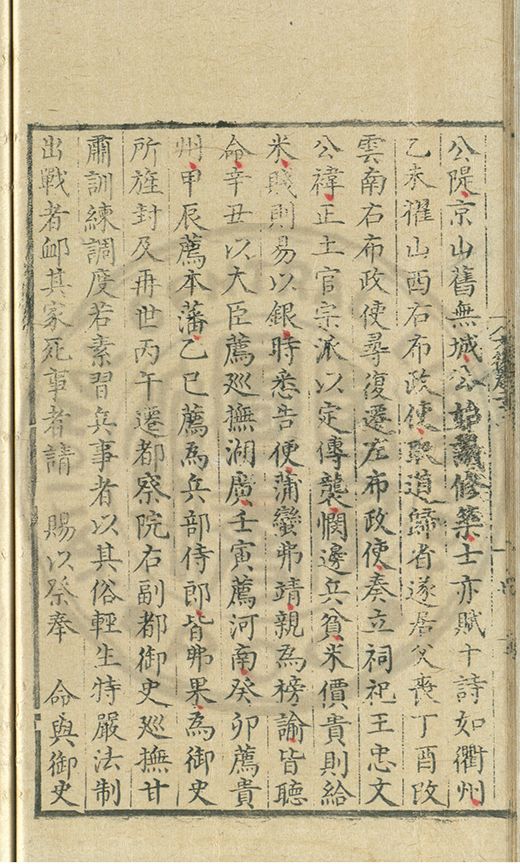 公隄京山舊無城公始議修築士亦賦十詩如衢州
乙未擢山西右布政使取道歸省遂居父喪丁酉改
雲南右布政使尋復遷左布政使奏立祠祀王忠文
公禕正土官宗派以定傳襲憫邊兵貧米價貴則給
米賤則易以銀時悉告便蒲蠻弗靖親為榜諭皆聽
命辛丑以大臣薦巡撫湖廣壬寅薦河南癸卯薦貴
州甲辰薦本藩乙巳薦為兵部侍郎皆弗果為御史
所旌封及再世丙午遷都察院右副都御史巡撫甘
肅訓練調度若素習兵事者以其俗輕生特嚴法制
出戰者卹其家死事者請 賜以祭奉 命與御史